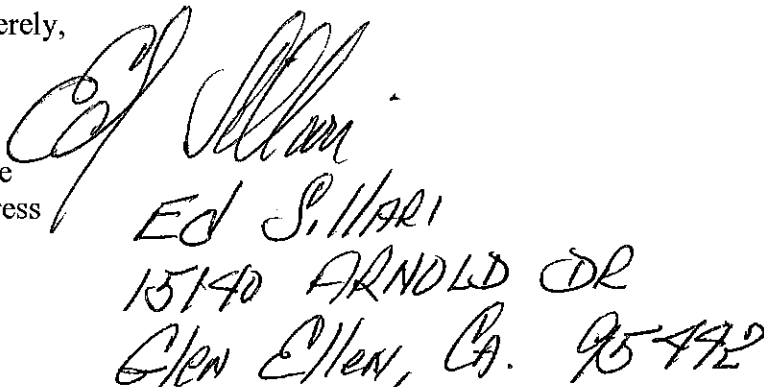 erely,
Ed Sillari
e
ress
Ed SillARI
15140 ARNOLD DR
Glen Ellen, CA. 95442